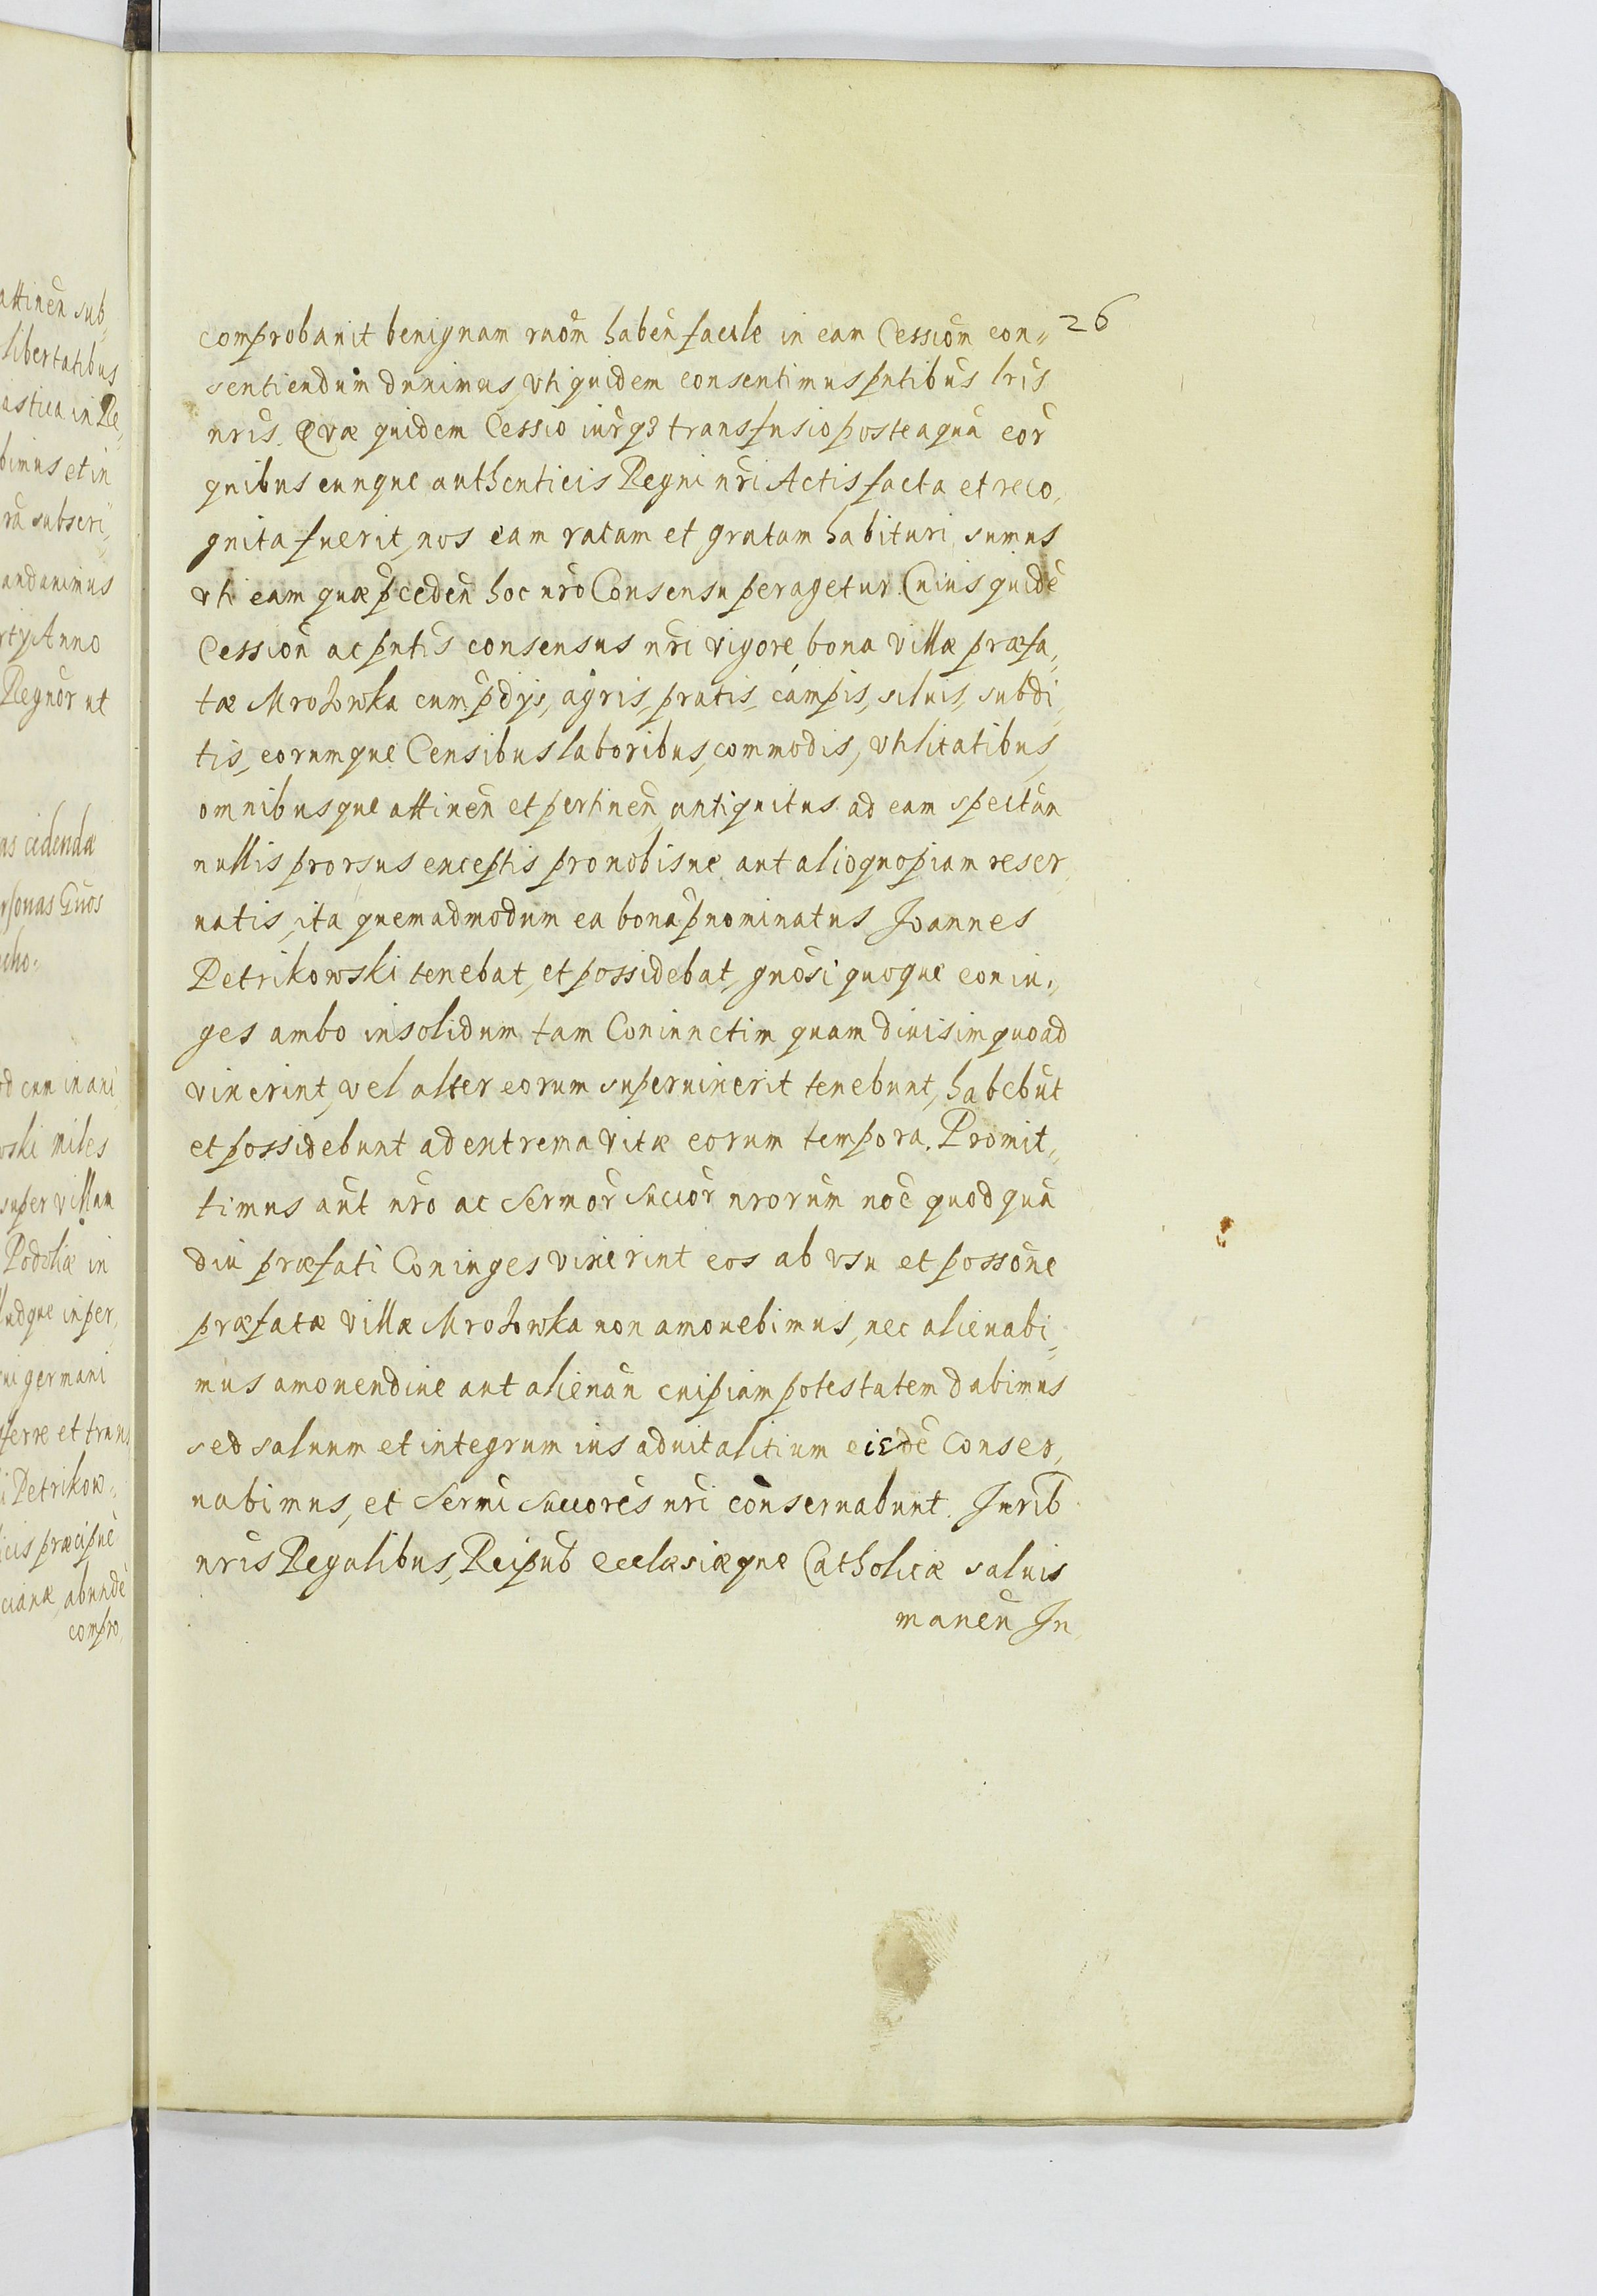 26
comprobauit benignam raõm habeñ facile in eam Cessiõm con„
sentiendum duximus, vti quidem consentimus pñtibus lris
nris. Quæ quidem Cessio iurq3 transfusio posteaquã cor̃
quibuscunque authenticis Regni nri Actis facta et reco„
gnita fuerit, nos eam ratam et gratam habituri sumus
vti eam quæ p̃ceden̄ hoc nro Consensu peragetur. Cuius quidẽ
Cession̄ ac pñtis consensus nri vigore, bona villæ præfa„
tæ Mrozowka cum p̃dijs, agris, pratis, campis, siluis, subdi„
tis, eorumque Censibus laboribus, commodis, vtilitatibus,
omnibusque attinen̄ et pertinen̄ antiquitus ad eam spectan̄
nullis prorsus exceptis pro nobisue aut alio quopiam reser„
uatis, ita quemadmodum ea bona p̃nominatus Joannes
Petrikowski tenebat, et possidebat, gnosi quoque coniu„
ges ambo insolidum tam Coniunctim quam diuisim quoad
vixerint, vel alter eorum superuixerit tenebunt, habebũt
et possidebunt ad extrema vitæ eorum tempora. Promit„
timus aũt nro ac Sermor̃ Succor̃ nrorum noẽ quod quã
diu præfati Coniuges vixerint eos ab vsu et possõne
præfatæ villæ Mrozowka non amouebimus, nec alienabi„
mus amouendiue aut alienan̄ cuipiam potestatem dabimus
sed saluum et integrum ius aduitalitium eisdẽ Conser„
uabimus, et Sermi Succores nri conseruabunt. Jurib
nris Regalibus, Reipub ecclesiæque Catholicæ saluis
manen̄ Jn